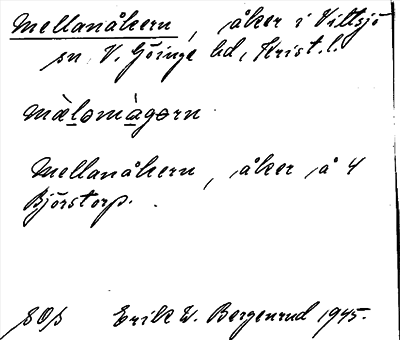 Mellanåkern, åker i Vittsjö
sn, V. Göinge hd, Krist. l.
mälomàgorn
Mellanåkern, åker å 4
Björstorp.
Erik W. Bergenrud 1945.